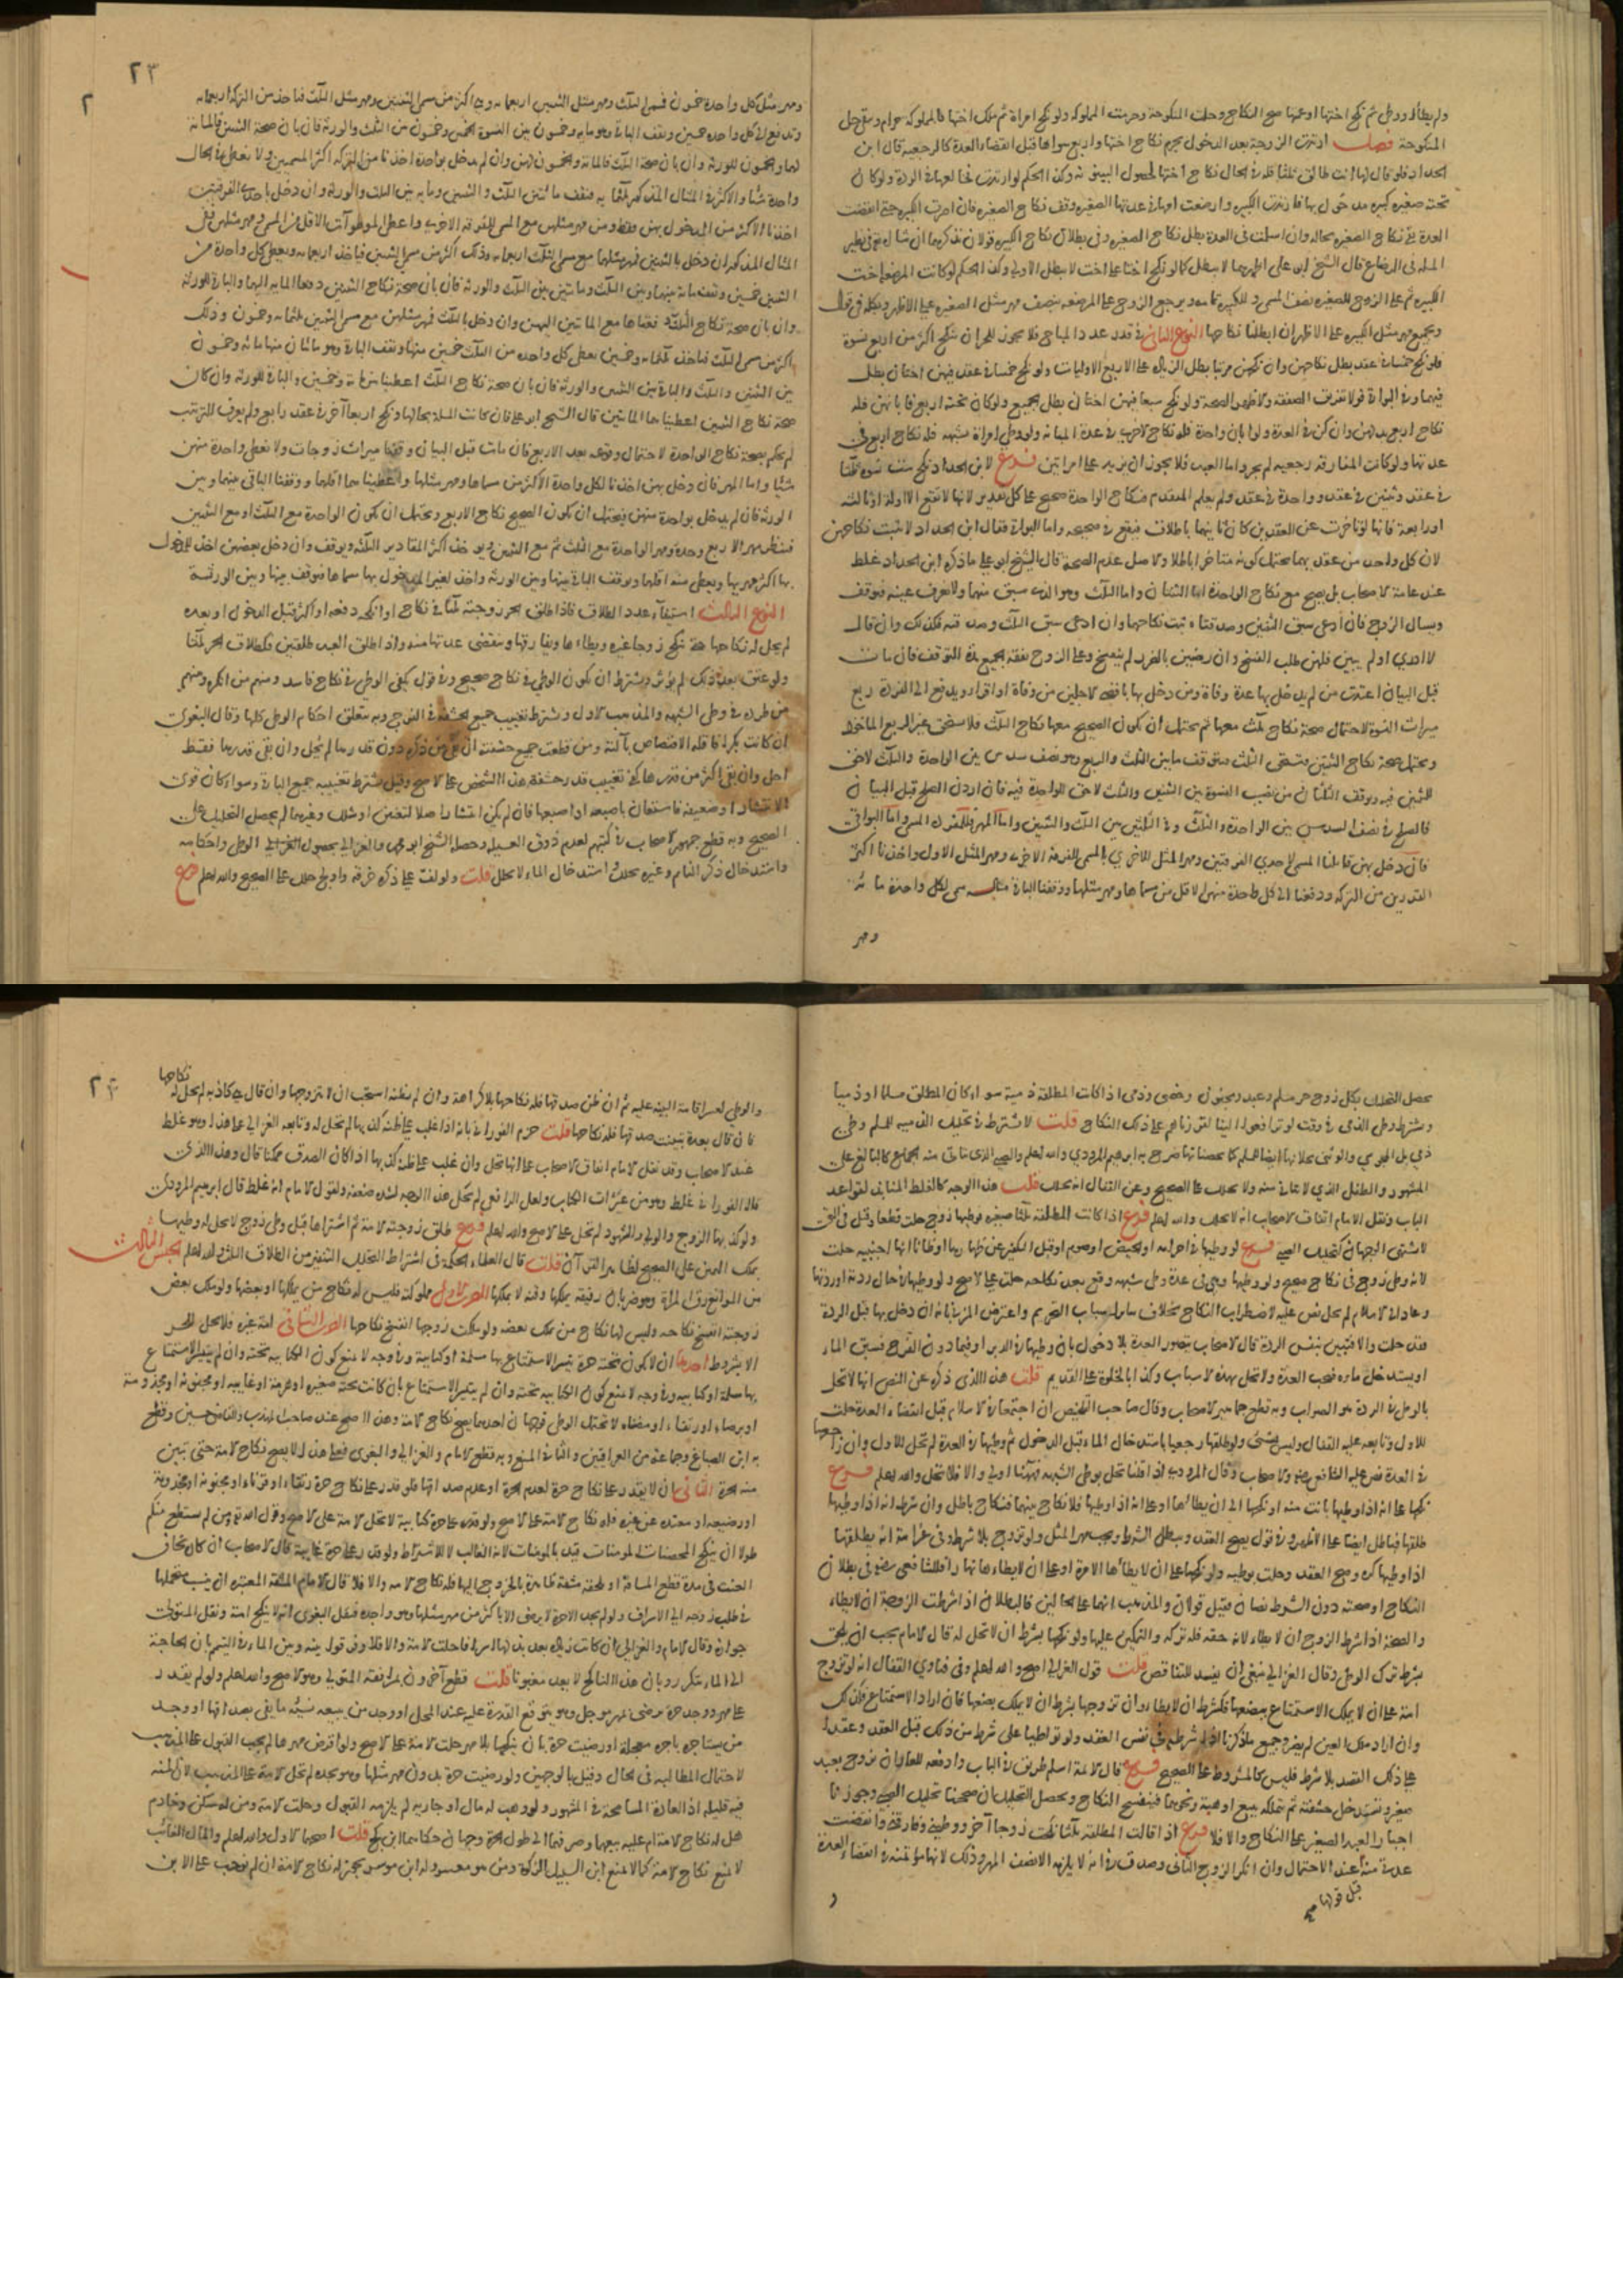 ولم يطأ او وطئ ثم نكح اختها او عمتها صح النكاح وحلت المنكوحة وحرمت المملوكة ولو نكح امراة ثم ملك اختها فالمملوكة حرام وبقي حل
المنكوحة فصل ارتدت الزوجة بعد الدخول يحرم نكاح اختها واربع سواها قبل انقضاء العدة كالرجعية قال ابن
الحداد فلو قال لها انت طالق ثلثا فله في الحال نكاح اختها لحصول البينونة وكذا الحكم لو ارتدت فخالعها في الردة ولو كان
تحته صغيرة وكبيرة مدخول بها فارتدت الكبيرة وارضعت امها في عدتها الصغيرة وقف نكاح الصغيرة فان اصرت الكبيرة حتى انقضت
العدة بقي نكاح الصغيرة بحاله وان اسلمت في العدة بطل نكاح الصغيرة وفي بطلان نكاح الكبيرة قولان نذكرهما ان شا الله تعالى في نظير
المسلة في الرضاع قال الشيخ ابو علي اظهرهما لا يبطل كما لو نكح اختا على اخت لا يبطل الاولى وكذا الحكم لو كانت المرضعة اخت
الكبيرة ثم على الزوج للصغيرة نصف المسمى وللكبيرة تمامه ويرجع الزوج على المرضعة بنصف مهر مثل الصغيرة على الاظهر وبكله في قول
وبجميع مهر مثل الكبيرة على الاظهر ان ابطلنا نكاحها النوع الثاني في قدر عدد المباح فلا يجوز للحر ان ينكح اكثر من اربع نسوة
فلو نكح خمسا في عقد بطل نكاحهن وان نكحهن مرتبا بطل الزيادة على الاربع الاوليات ولو نكح خمسا في عقد فيهن اختان بطل
فيهما وفي البواقي قولا تفريق الصفقة والاظهر الصحة ولو نكح سبعا فيهن اختان بطل الجميع ولو كان تحته اربع فابانهن فله
نكاح اربع بدلهن وان كن في العدة ولو ابان واحدة فله نكاح اخرى في عدة المبانة ولو وطئ امراة بشبهة فله نكاح اربع في
عدتها ولو كانت المفارقة رجعية لم يجز واما العبد فلا يجوز ان يزيد على امراتين فرع لابن الحداد نكح ست نسوة ثلثا
في عقد وثنتين في عقد وواحدة في عقد ولم يعلم المتقدم فنكاح الواحدة صحيح على كل تقدير لانها لا تقع الا اولة او ثالثة
او رابعة فانها لو تاخرت عن العقدين كان ثانيهما باطلا فتقع هي صحيحة واما البواقي فقال ابن الحداد لا يثبت نكاحهن
لان كل واحد من عقديهما يحتمل كونه متاخرا باطلا والاصل عدم الصحة قال الشيخ ابو علي ما ذكره ابن الحداد غلط
عند عامة الاصحاب بل يصح مع نكاح الواحدة اما الثنتان واما الثلث وهو الذي سبق منهما ولا نعرف عينه فنوقف
ويسال الزوج فان ادعى سبق الثنتين وصدقتاه ثبت نكاحهما وان ادعى سبق الثلث وصدقنه فكذلك وان قال
لا ادري او لم يبين فلهن طلب الفسخ وان رضين بالضرر لم ينفسخ وعلى الزوج نفقة الجميع مدة التوقف فان مات
قبل البيان اعتدت من لم يدخل بها عدة وفاة ومن دخل بها باقصى الاجلين من وفاة او اقراء ويدفع الى الفردة ربع
ميراث النسوة لاحتمال صحة نكاح ثلث معها ثم يحتمل ان يكون الصحيح معها نكاح الثلث فلا تستحق غير الربع الماخوذ
ويحتمل صحة نكاح الثنتين فتستحق الثلث فتوقف ما بين الثلث والربع وهو نصف سدس بين الواحدة والثلث لا حق
للثنتين فيه ويوقف الثلثان من نصيب النسوة بين الثنتين والثلث لا حق للواحدة فيه فان اردن الصلح قبل البيان
فالصلح في نصف السدس بين الواحدة والثلث وفي الثلثين بين الثلث والثنتين واما المهر فللمفردة المسمى واما البواقي
فان دخل بهن قابلنا المسمى لاحدى الفرقتين ومهر المثل للاخرى بالمسمى للفرقة الاخرى ومهر المثل الاول واخذنا اكثر
القدرين من التركة ودفعنا الى كل واحدة منهن الاقل من مسماها ومهر مثلها ووقفنا الباقي مثاله سمى لكل واحدة مائة
ومهر
٢٣
٢
ومهر مثل كل واحدة خمسون فمسمى الثلث ومهر مثل الثنتين اربعمائة وهي اكثر من مسمى الثنتين ومهر مثل الثلث فناخذ من التركة اربعمائة
وندفع الى كل واحدة خمسين ونقف الباقي وهو مائة وخمسون بين النسوة الخمس وخمسون من الثلث والورثة فان بان صحة الثنتين فالمائة
لهما والخمسون للورثة وان بان صحة الثلث فالمائة والخمسون لهن وان لم يدخل بواحدة اخذنا من التركة اكثر المسميين ولا نعطي في الحال
واحدة شيا والاكثر في المثال المذكور ثلثمائة فنقف مائتين بين الثلث والثنتين ومائة بين الثلث والورثة وان دخل باحدى الفرقتين
اخذنا الاكثر من المدخول بهن فقط ومن مهر مثلهن مع المسمى للفرقة الاخرى واعطي الموطوآت الاقل من المسمى ومهر مثلهن ففي
المثال المذكور ان دخل بالثنتين فمهر مثلهما مع مسمى الثلث اربعمائة وذلك اكثر من مسمى الثنتين فناخذ اربعمائة ونعطي كل واحدة من
الثنتين خمسين ونقف مائة بينهما وبين الثلث ومائتين بين الثلث والورثة فان بان صحة نكاح الثنتين دفعنا المائة اليهما والباقي للورثة
وان بان صحة نكاح الثلث دفعناها مع المائتين اليهن وان دخل بالثلث فمهر مثلهن مع مسمى الثنتين ثلثمائة وخمسون وذلك
اكثر من مسمى الثلث فناخذ ثلثمائة وخمسين نعطي كل واحدة من الثلث خمسين منها ونقف الباقي وهو مائتان منها مائة وخمسون
بين الثنتين والثلث والباقي بين الثنتين والورثة فان بان صحة نكاح الثلث اعطيناهن مائة وخمسين والباقي للورثة وان كان
صحة نكاح الثنتين اعطيناهما المائتين قال الشيخ ابو علي فان كانت المسلة بحالها ونكح اربعا آخر في عقد رابع ولم يعرف الترتيب
لم يحكم بصحة نكاح الواحدة لاحتمال وقوعه بعد الاربع فان مات قبل البيان وقفنا ميراث زوجات ولا نعطي واحدة منهن
شيئا واما المهر فان دخل بهن اخذنا لكل واحدة الاكثر من مسماها ومهر مثلها واعطيناها اقلهما ووقفنا الباقي بينها وبين
الورثة فان لم يدخل بواحدة منهن فيحتمل ان يكون الصحيح نكاح الاربع ويحتمل ان يكون الواحدة مع الثلث او مع الثنتين
فينظر مهر الاربع وحده ومهر الواحدة مع الثلث ثم مع الثنتين ويوخذ اكثر المقادير الثلثة ويوقف وان دخل ببعضهن اخذ للمدخول
بها اكثر مهريها ويعطى منه اقلهما ويوقف الباقي بينها وبين الورثة واخذ لغير المدخول بها مسماها فيوقف بينها وبين الورثة
النوع الثالث استيفاء عدد الطلاق فاذا طلق الحر زوجته ثلثا في نكاح او انكحة دفعة او اكثر قبل الدخول او بعده
لم يحل له نكاحها حتى تنكح زوجا غيره ويطاءها ويفارقها وتنقضي عدتها منه واذا طلق العبد طلقتين فكطلاق الحر ثلثا
ولو عتق بعد ذلك لم يؤثر ويشترط ان يكون الوطئ في نكاح صحيح وفي قول يكفي الوطئ في نكاح فاسد ومنهم من انكره ومنهم
من طرده في وطئ الشبهة والمذهب الاول ويشترط تغييب جميع الحشفة في الفرج وبه يتعلق احكام الوطئ كلها وقال البغوي
ان كانت بكرا فاقله الافتضاض بآلته ومن قطعت جميع حشفته ان بقي من ذكره دون قدرها لم يحل وان بقي قدرها فقط
احل وان بقي اكثر من قدرها كفى تغييب قدر حشفة هذا الشخص على الاصح وقيل يشترط تغييبه جميع الباقي وسواء كان قوي
الانتشار او ضعيفه فاستعان باصبعه او اصبعها فان لم يكن انتشار اصلا لتعنين او شلل وغيرهما لم يحصل التحليل على
الصحيح وبه قطع جمهور الاصحاب في كتبهم لعدم ذوق العسيلة وحصله الشيخ ابو محمد والغزالي بحصول الوطئ واحكامه
وامتدخال ذكر النائم وغيره يحلل واستدخال الماء لا يحلل قلت ولو لفت على ذكره خرقة واولج حلل على الصحيح والله اعلم فرع
يحصل التحليل بكل زوج حر مسلم وعبد ومجنون وخصي وذمي اذا كانت المطلقة ذمية سواء كان المطلق مسلما او ذميا
ويشترط وطئ الذمي في وقت لو ترافعوا الينا لقررناهم على ذلك النكاح قلت لا يشترط في تحليل الذمية للمسلم وطئ
ذمي بل المجوسي والوثني يحلانها ايضا للمسلم كما يحصنانها صرح به ابراهيم المروذي والله اعلم والصبي الذي يتاتى منه الجماع كالبالغ على
المشهور والطفل الذي لا يتاتى منه ولا يحلل على الصحيح وعن القفال انه يحلل قلت هذا الوجه كالغلط المنابذ لقواعد
الباب ونقل الامام اتفاق الاصحاب انه لا يحلل والله اعلم فرع اذا كانت المطلقة ثلثا صغيرة فوطئها زوج حلت قطعا وقيل في التي
لا تشتهى الوجهان كتحليل الصبي فرع لو وطئها في احرامه او الحيض او صوم او قبل التكفير عن ظهارها او ظانا انها اجنبية حلت
لانه وطئ زوج في نكاح صحيح ولو وطئها وهي في عدة وطئ شبهة وقع بعد نكاحه حلت على الاصح ولو وطئها في حال ردته او ردتها
وعاد الى الاسلام لم يحل نص عليه لاضطراب النكاح بخلاف سائر اسباب التحريم واعترض المزني بانه ان دخل بها قبل الردة
فقد حلت والا فتبين بنفس الردة قال الاصحاب يتصور العدة بلا دخول بان وطئها في الدبر او فيما دون الفرج فسبق الماء
او يستدخل ماءه فتجب العدة ولا تحل بهذه الاسباب وكذا بالخلوة على القديم قلت هذا الذي ذكره عن النص انها لا تحل
بالوطئ في الردة هو الصواب وبه قطع جماهير الاصحاب وقال صاحب التلخيص ان اجتمعا في الاسلام قبل انقضاء العدة حلت
للاول وتابعه عليه القفال وليس بشيء ولو طلقها رجعيا باستدخال الماء قبل الدخول ثم وطئها في العدة لم تحل للاول وان راجعها
في العدة نص عليه الشافعي رضي الله عنه والاصحاب وقال المروذي اذا قلنا تحل بوطئ الشبهة فهنا اولى والا فلا تحل والله اعلم فرع
نكحها على انه اذا وطئها بانت منه او نكحها الى ان يطاءها او على انه اذا وطئها فلا نكاح بينهما فنكاح باطل وان شرط انه اذا وطئها
طلقها فباطل ايضا على الاظهر وفي قول يصح العقد ويبطل الشرط ويجب مهر المثل ولو تزوج بلا شرط وفي عزمه انه يطلقها
اذا وطئها كره وصح العقد وحلت بوطئه ولو نكحها على ان لا يطأها الا مرة او على ان لا يطاءها نهارا فللشافعي رضي الله عنه في بطلان
النكاح او صحته دون الشرط نصان فقيل قولان والمذهب انهما على حالين فالبطلان اذا شرطت الزوجة ان لا يطاء
والصحة اذا شرط الزوج ان لا يطاء لانه حقه فله تركه والتمكين عليها ولو نكحها بشرط ان لا تحل له قال الامام يجب ان يلحق
بشرط ترك الوطئ وقال الغزالي ينبغي ان يفسد للتناقض قلت قول الغزالي اصح والله اعلم وفي فتاوى القفال انه لو تزوج
امة على ان لا يملك الاستمتاع ببضعها فكشرط ان لا يطاء وان تزوجها بشرط ان لا يملك بضعها فان اراد الاستمتاع فكذلك
وان اراد ملك العين لم يضر وجميع ما ذكرنا اذا شرطه في نفس العقد ولو تواطيا على شرط من ذلك قبل العقد وعقدا
على ذلك القصد بلا شرط فليس كالمشروط على الصحيح فرع قال الائمة اسلم طريق في الباب وادفعه للعار ان تزوج بعبد
صغير وتستدخل حشفته ثم تتملكه ببيع او هبة ونحوهما فينفسخ النكاح ويحصل التحليل ان صححنا تحليل الصبي وجوزنا
اجبار العبد الصغير على النكاح والا فلا فرع اذا قالت المطلقة ثلثا نكحت زوجا آخر ووطئني وفارقني وانقضت
عدتي منه عند الاحتمال وان انكر الزوج الثاني وصدق في انه لا يلزمه الا نصف المهر وذلك لانها مؤتمنة في انقضاء العدة
قبل قولها صح
و
٢٤
نكاحها
والوطئ لعسر اقامة البينة عليه ثم ان ظن صدقها فله نكاحها بلا كراهة وان لم يظنه استحب ان لا يتزوجها وان قال هي كاذبة لم يحل له
فان قال بعده تبينت صدقها فله نكاحها قلت جزم الفوراني بانه اذا غلب على ظنه كذبها لم تحل له وتابعه الغزالي على هذا وهو غلط
عند الاصحاب وقد نقل الامام اتفاق الاصحاب على انها تحل وان غلب على ظنه كذبها اذا كان الصدق ممكنا قال وهذا الذي
قاله الفوراني غلط وهو من عثرات الكتاب ولعل الرافعي لم يحك هذا الوجه لشدة ضعفه ولقول الامام انه غلط قال ابراهيم المروذي
ولو كذبها الزوج والولي والشهود لم تحل على الاصح والله اعلم فرع طلق زوجته الامة ثم اشتراها قبل وطئ زوج لا يحل له وطئها
بملك اليمين على الصحيح لظاهر القرآن قلت قال العلماء الحكمة في اشتراط التحليل التنفير من الطلاق الثلث والله اعلم الجنس الثالث
من الموانع رق المراة وهو ضربان رقيقة يملكها وقنة لا يملكها الضرب الاول مملوكته فليس له نكاح من يملكها او بعضها ولو ملك بعض
زوجته انفسخ نكاحه وليس لها نكاح من تملك بعضه ولو ملكت زوجها انفسخ نكاحها الضرب الثاني امة غيره فلا تحل للحر
الا بشروط احدها ان لا يكون تحته حرة يتيسر الاستمتاع بها مسلمة او كتابية وفي وجه لا يمنع كون الكتابية تحته وان لم يتيسر الاستمتاع
بها مسلمة او كتابية وفي وجه لا يمنع كون الكتابية تحته وان لم يتيسر الاستمتاع بان كانت تحته صغيرة او هرمة او غائبة او مجنونة او مجذومة
او برصاء او رتقاء او مضناة لا تحتمل الوطئ فوجهان احدهما يصح نكاح الامة وهذا الاصح عند صاحب المهذب والقاضي حسين وقطع
به ابن الصباغ وجماعة من العراقيين والثاني المنع وبه قطع الامام والغزالي والبغوي فعلى هذا لا يصح نكاح الامة حتى تبين
منه الحرة الثاني ان لا يقدر على نكاح حرة لعدم الحرة او عدم صداقها فلو قدر على نكاح حرة رتقاء او قرناء او مجنونة او مجذومة
او رضيعة او معتدة عن غيره فله نكاح الامة على الاصح ولو قدر على حرة كتابية لا تحل الامة على الاصح وقول الله تعالى ومن لم يستطع منكم
طولا ان ينكح المحصنات المومنات قيد بالمومنات لانه الغالب لا للاشتراط ولو قدر على حرة غايبة قال الاصحاب ان كان يخاف
العنت في مدة قطع المسافة او تلحقه مشقة ظاهرة بالخروج اليها فله نكاح الامة والا فلا قال الامام المشقة المعتبرة ان ينسب متحملها
في طلب زوجة الى الاسراف ولو لم يجد الا حرة لا ترضى الا باكثر من مهر مثلها وهو واجده فنقل البغوي انه لا ينكح امة ونقل المتولي
جوازه وقال الامام والغزالي ان كانت زيادة يعد بذلها اسرافا حلت الامة والا فلا وفرقوا بينه وبين الماء في التيمم بان الحاجة
الى الماء تتكرر وبان هذا الناكح لا يعد مغبونا قلت قطع آخرون بموافقة المتولي وهو الاصح والله اعلم ولو لم يقدر
على مهر ووجد حرة ترضى بمهر موجل وهو يتوقع القدرة عليه عند المحل او وجد من يبيعه نسيئة ما يفي بصداقها او وجد
من يستاجره باجرة معجلة او رضيت حرة بان ينكحها بلا مهر حلت الامة على الاصح ولو اقرض مهرها لم يجب القبول على المذهب
لاحتمال المطالبة في الحال وقيل بالوجهين ولو رضيت حرة بدون مهر مثلها وهو يجده لم تحل الامة على المذهب لان المنة
فيه قليلة اذ العادة المسامحة في المهور ولو وهب له مال او جارية لم يلزمه القبول وحلت الامة ومن له مسكن وخادم
هل له نكاح الامة ام عليه بيعهما وصرفهما الى طول الحرة وجهان حكاهما ابن كج قلت اصحهما الاول والله اعلم والمال الغائب
لا يمنع نكاح الامة كما لا يمنع ابن السبيل الزكوة ومن هو معسر وله ابن موسر يجوز له نكاح الامة ان لم نوجب على الابن